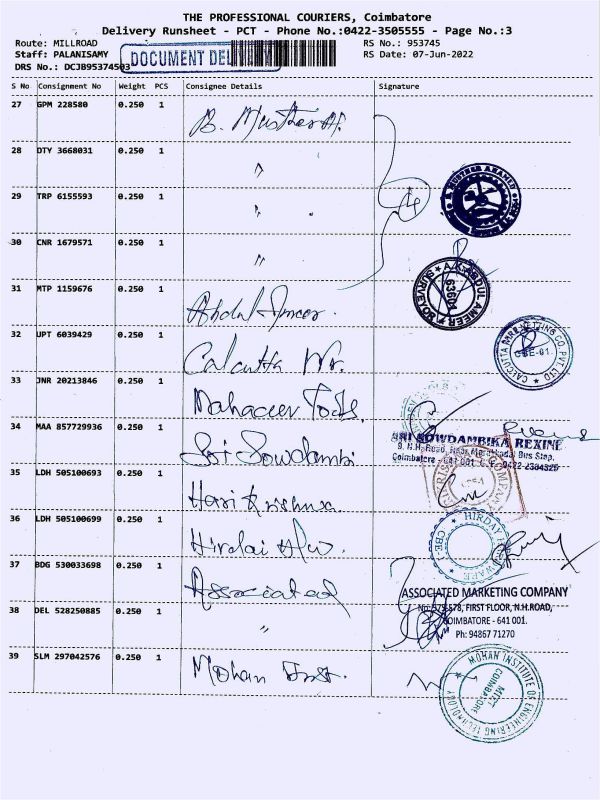 THE PROFESSIONAL COURIERS, Coimbatore
Delivery Runsheet - PCT - Phone No.:0422-3505555 - Page No.:3
Route: MILLROAD RS No.: 953745
Staff: PALANISAMY RS Date: 07-Jun-2022
DOCUMENT DELIVERY
DRS No.: DCJB95374503
S No Consignment No Weight PCS Consignee Details Signature
27 GPM 228580 0.250 1 B. Musthafa
28 DTY 3668031 0.250 1 "
29 TRP 6155593 0.250 1 "
30 CNR 1679571 0.250 1 "
A.K. ABDUL AMEER
SURVEYOR
63604
31 MTP 1159676 0.250 1 Abdul Ameer
32 UPT 6039429 0.250 1 Calcutta Mr.
CALCUTTA MARKETING CO. PVT. LTD
CBE-01.
33 JNR 20213846 0.250 1 Mahaveer Tools
34 MAA 857729936 0.250 1 Sri Sowdambi
SRI SOWDAMBIKA REXINE
9, N.H. Road, Near Marakkadai Bus Stop,
Coimbatore - 641 001. 0422-2394325
35 LDH 505100693 0.250 1 Hari Krishna
36 LDH 505100699 0.250 1 Hirdai Hw.
HIRDAY HARDWARE
CBE-1
37 BDG 530033698 0.250 1 Associated
ASSOCIATED MARKETING COMPANY
No: 575-578, FIRST FLOOR, N.H.ROAD,
COIMBATORE - 641 001.
Ph: 94867 71270
38 DEL 528250885 0.250 1 "
39 SLM 297042576 0.250 1 Mohan Inst.
MOHAN INSTITUTE OF ENGINEERING TECHNOLOGY
MIET
COIMBATORE